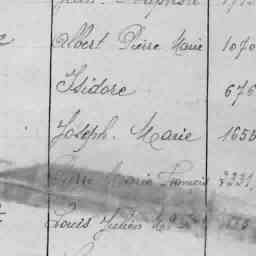 Albert Pierre Marie 1070
Isidore 676
Joseph-Marie 1656
Pierre Marie François 3231
Louis Julien